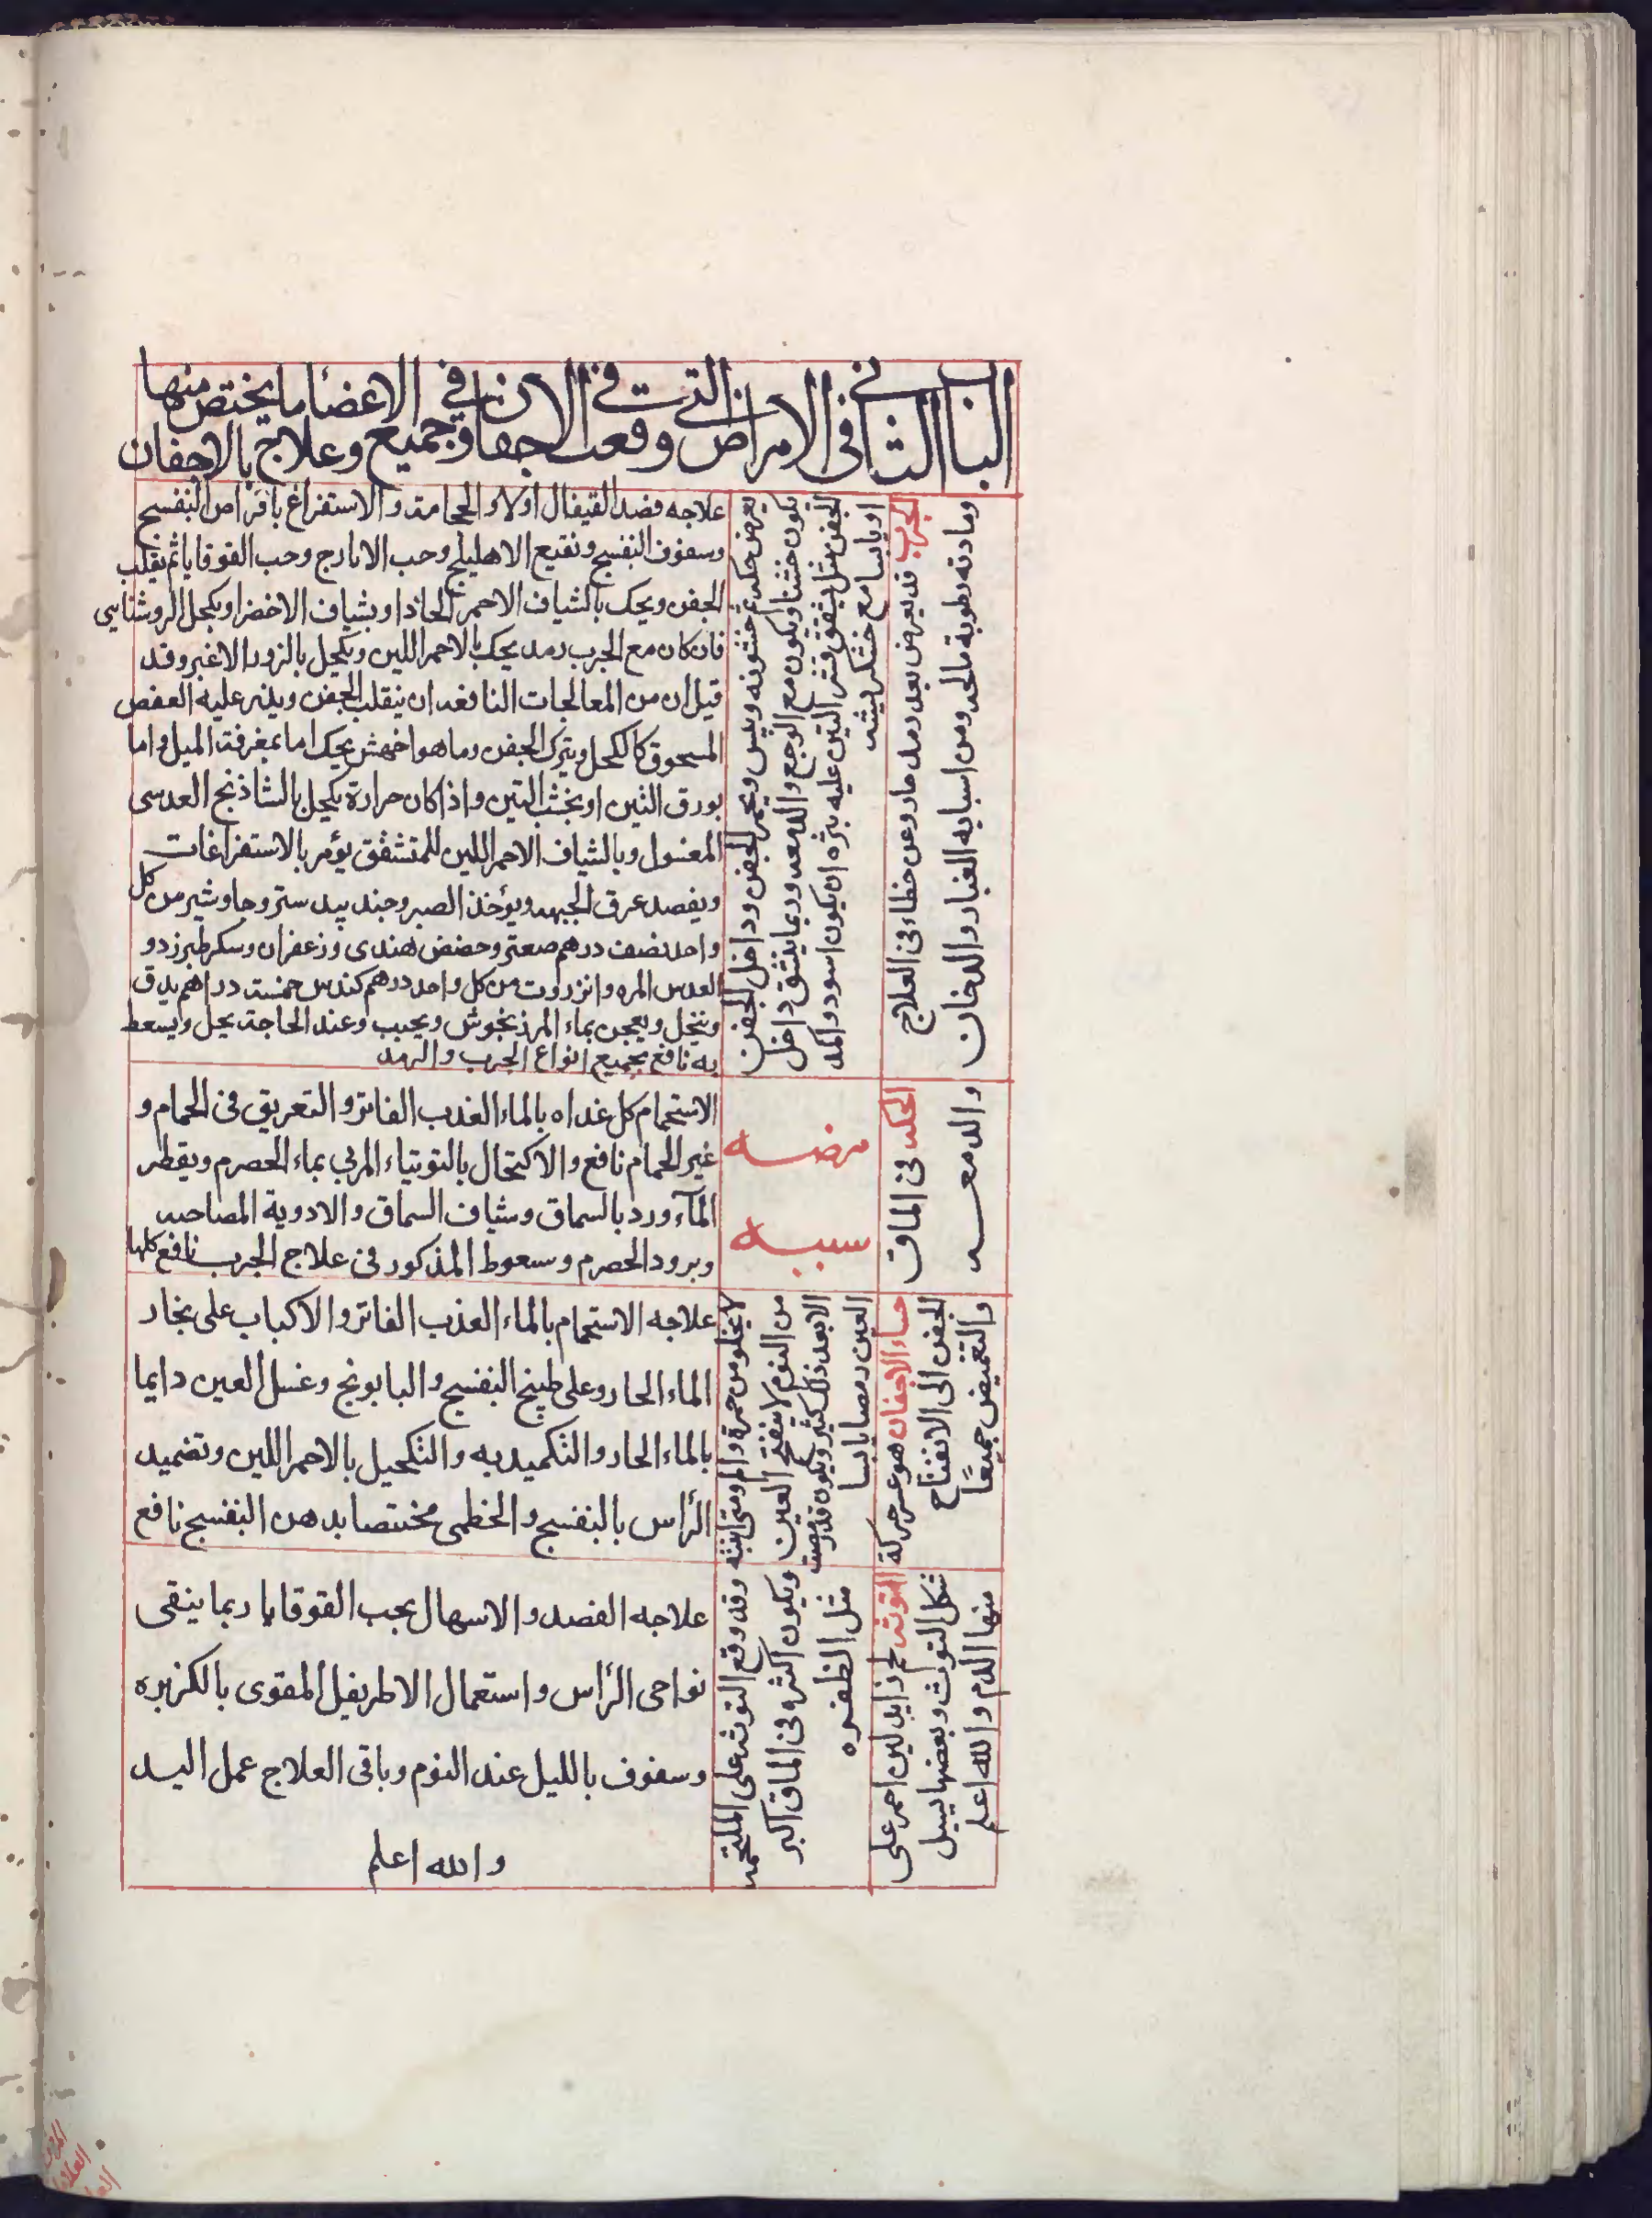 الباب الثاني في الامراض التي وقعت في الاجفان وفي جميع الاعضا وعلاج ما يختص منها بالاجفان
الجرب قد يعرض بعد رمد حار وعن خطاء في العلاج
ومادته رطوبة مالحه ومن اسبابه الغبار والدخان
يعرض حكه خشونه ويبس ويحمر الجفن وداخل الجفن
يكون خشنا ويكون مع الوجع والدمعه وربما ينشق داخل
الجفن مثل يشقق قشر التين عليه بثره ان يكون اسود واكمد
او يابسا مع خشكريشه
علاجه فصد القيفال اولا والحجامة والاستفراغ باقراص البنفسج
وسفوف البنفسج ونقيع الاهليلج وحب الايارج وحب القوقايا ثم يقلب
الجفن ويحك بالشياف الاحمر الحاد او بشياف الاخضر او بكحل الروشنايي
فان كان مع الجرب رمد يحك بالاحمر اللين ويكحل بالزرور الاغبر وقد
قيل ان من المعالجات النافعه ان ينقلب الجفن ويذر عليه العفص
المسحوق كالكحل ويترك الجفن وما هو اخهش يحك اما بمغرفة الميل واما
بورق التين او بخشب التين واذا كان حرارة يكحل بالشاذنج العدسى
المغسول وبالشياف الاحمر اللين للمتشقق يؤمر بالاستفراغات
ويفصد عرق الجبهه ويؤخذ الصبر وجند بيدستر وجاوشير من كل
واحد نصف درهم صعتر وحضض هندى وزعفران وسكر طبرزد و
العدس المره وانزروت من كل واحد درهم كندس خمسة دراهم يدق
وينخل ويعجن بماء المرزنجوش ويحبب وعند الحاجة يحل ويسعط
به نافع لجميع انواع الجرب والرمد
الحكه في الماق
والدمعه
مرضه
سببه
الاستحمام كل غداه بالماء العذب الفاتر والتعريق في الحمام و
غير الحمام نافع والاكتحال بالتوتياء المربي بماء الحصرم ويقطر
المآء ورد بالسماق وشياف السماق والادوية المصاحبه
وبرود الحصرم وسعوط المذكور في علاج الجرب نافع كلها
جساء الاجفان هو عسر حركة
الجفن الى الانفتاح
والتغميض جميعًا
لا يخلو من حمرة والم ومتى انتبه
من النوم لا ينفتح العين
الا بعد ذلك كثير ويكون قد رمصت
العين رمصا يابسا
علاجه الاستحمام بالماء العذب الفاتر والاكباب على بخار
الماء الحار وعلى طبيخ البنفسج والبابونج وغسل العين دايما
بالماء الحار والتكميد به والتكحيل بالاحمر اللين وتضميد
الرأس بالبنفسج والخطمى مختصا بدهن البنفسج نافع
التوثه لحم زايد لين احمر على
شكل التوث وبعضها يسيل
منها الدم والله اعلم
وقد وقع التوثه على الملتحمه
ويكون اكثره في الماق اكبر
مثل الظفره
علاجه الفصد والاسهال بحب القوقايا ربما ينقى
نواحى الرأس واستعمال الاطريفل المقوى بالكزبره
وسفوف بالليل عند النوم وباقى العلاج عمل اليد
والله اعلم